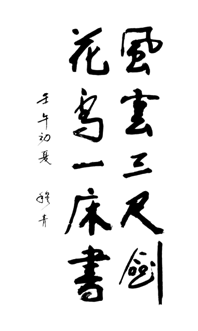 風雲三尺劍
花鳥一床書
壬午初夏 穆青